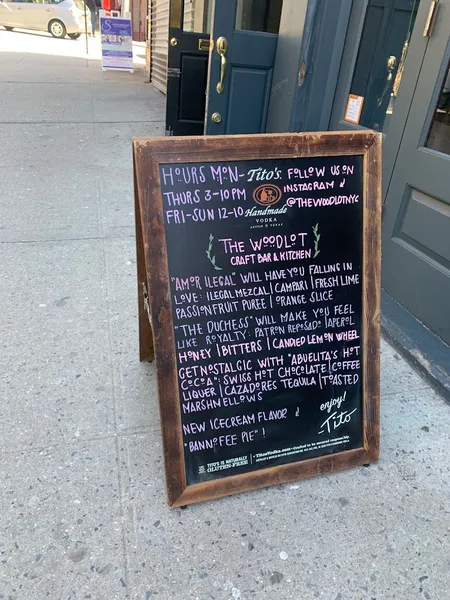 HOURS MON-
THURS 3-10PM
FRI-SUN 12-10
Tito's
Handmade
VODKA
AUSTIN TEXAS
FOLLOW US ON
INSTAGRAM
@THEWOODLOTNYC
THE WOODLOT
CRAFT BAR & KITCHEN
"AMOR ILEGAL" WILL HAVE YOU FALLING IN
LOVE: ILEGAL MEZCAL | CAMPARI | FRESH LIME
PASSIONFRUIT PUREE | ORANGE SLICE
"THE DUCHESS" WILL MAKE YOU FEEL
LIKE ROYALTY: PATRON REPOSADO | APEROL
HONEY | BITTERS | CANDIED LEMON WHEEL
GET NOSTALGIC WITH "ABUELITA'S HOT
COCOA": SWISS HOT CHOCOLATE | COFFEE
LIQUER | CAZADORES TEQUILA | TOASTED
MARSHMELLOWS
NEW ICECREAM FLAVOR
"BANNOFEE PIE"!
enjoy!
Tito
TITO'S IS NATURALLY
GLUTEN-FREE
TitosVodka.com